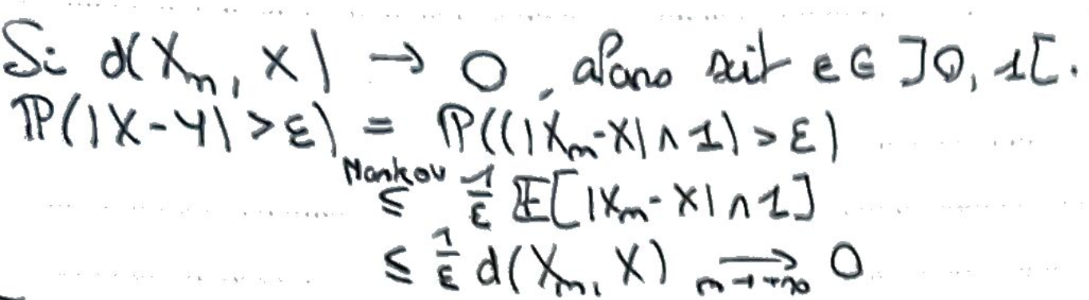 Si d(Xn, X) → 0, alors soit ε ∈ ]0, 1[.
ℙ(|X-Y| > ε) = ℙ((|Xn-X| ∧ 1) > ε)
Markov ≤ 1/ε 𝔼[|Xn-X| ∧ 1]
≤ 1/ε d(Xn, X) ⟶ n→+∞ 0